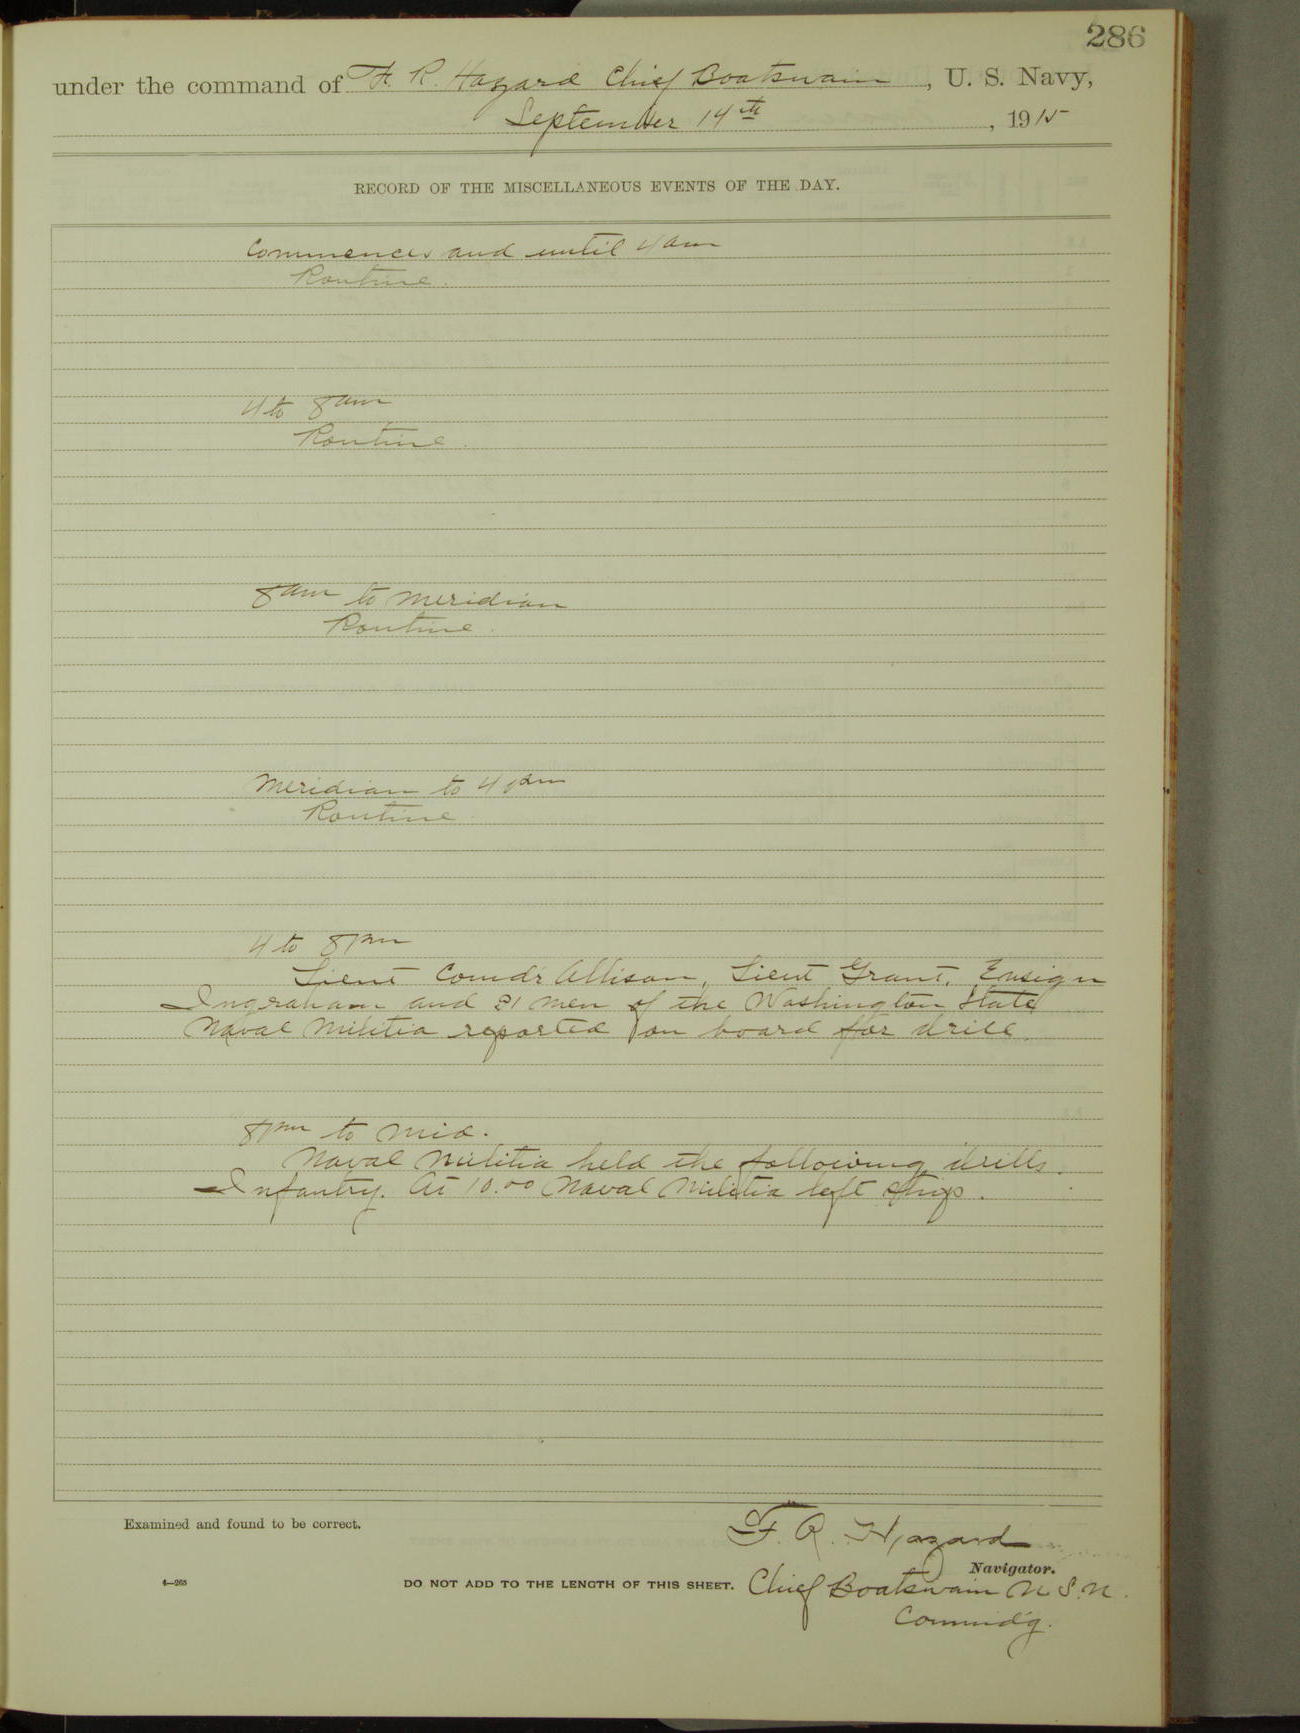 286
under the command of F. R. Hazard Chief Boatswain, U. S. Navy,
September 14th, 1915
RECORD OF THE MISCELLANEOUS EVENTS OF THE DAY.
Commences and until 4 am
Routine.
4 to 8 am
Routine.
8 am to Meridian
Routine.
Meridian to 4 pm
Routine
4 to 8 pm
Lieut Comdr Allison, Lieut Grant, Ensign
Ingraham and 31 men of the Washington State
Naval Militia reported on board for drill.
8 pm to Mid.
Naval Militia held the following drills.
Infantry. At 10.00 Naval Militia left ship.
Examined and found to be correct.
F. R. Hazard
Navigator.
4—265
DO NOT ADD TO THE LENGTH OF THIS SHEET.
Chief Boatswain U.S.N.
Commd'g.